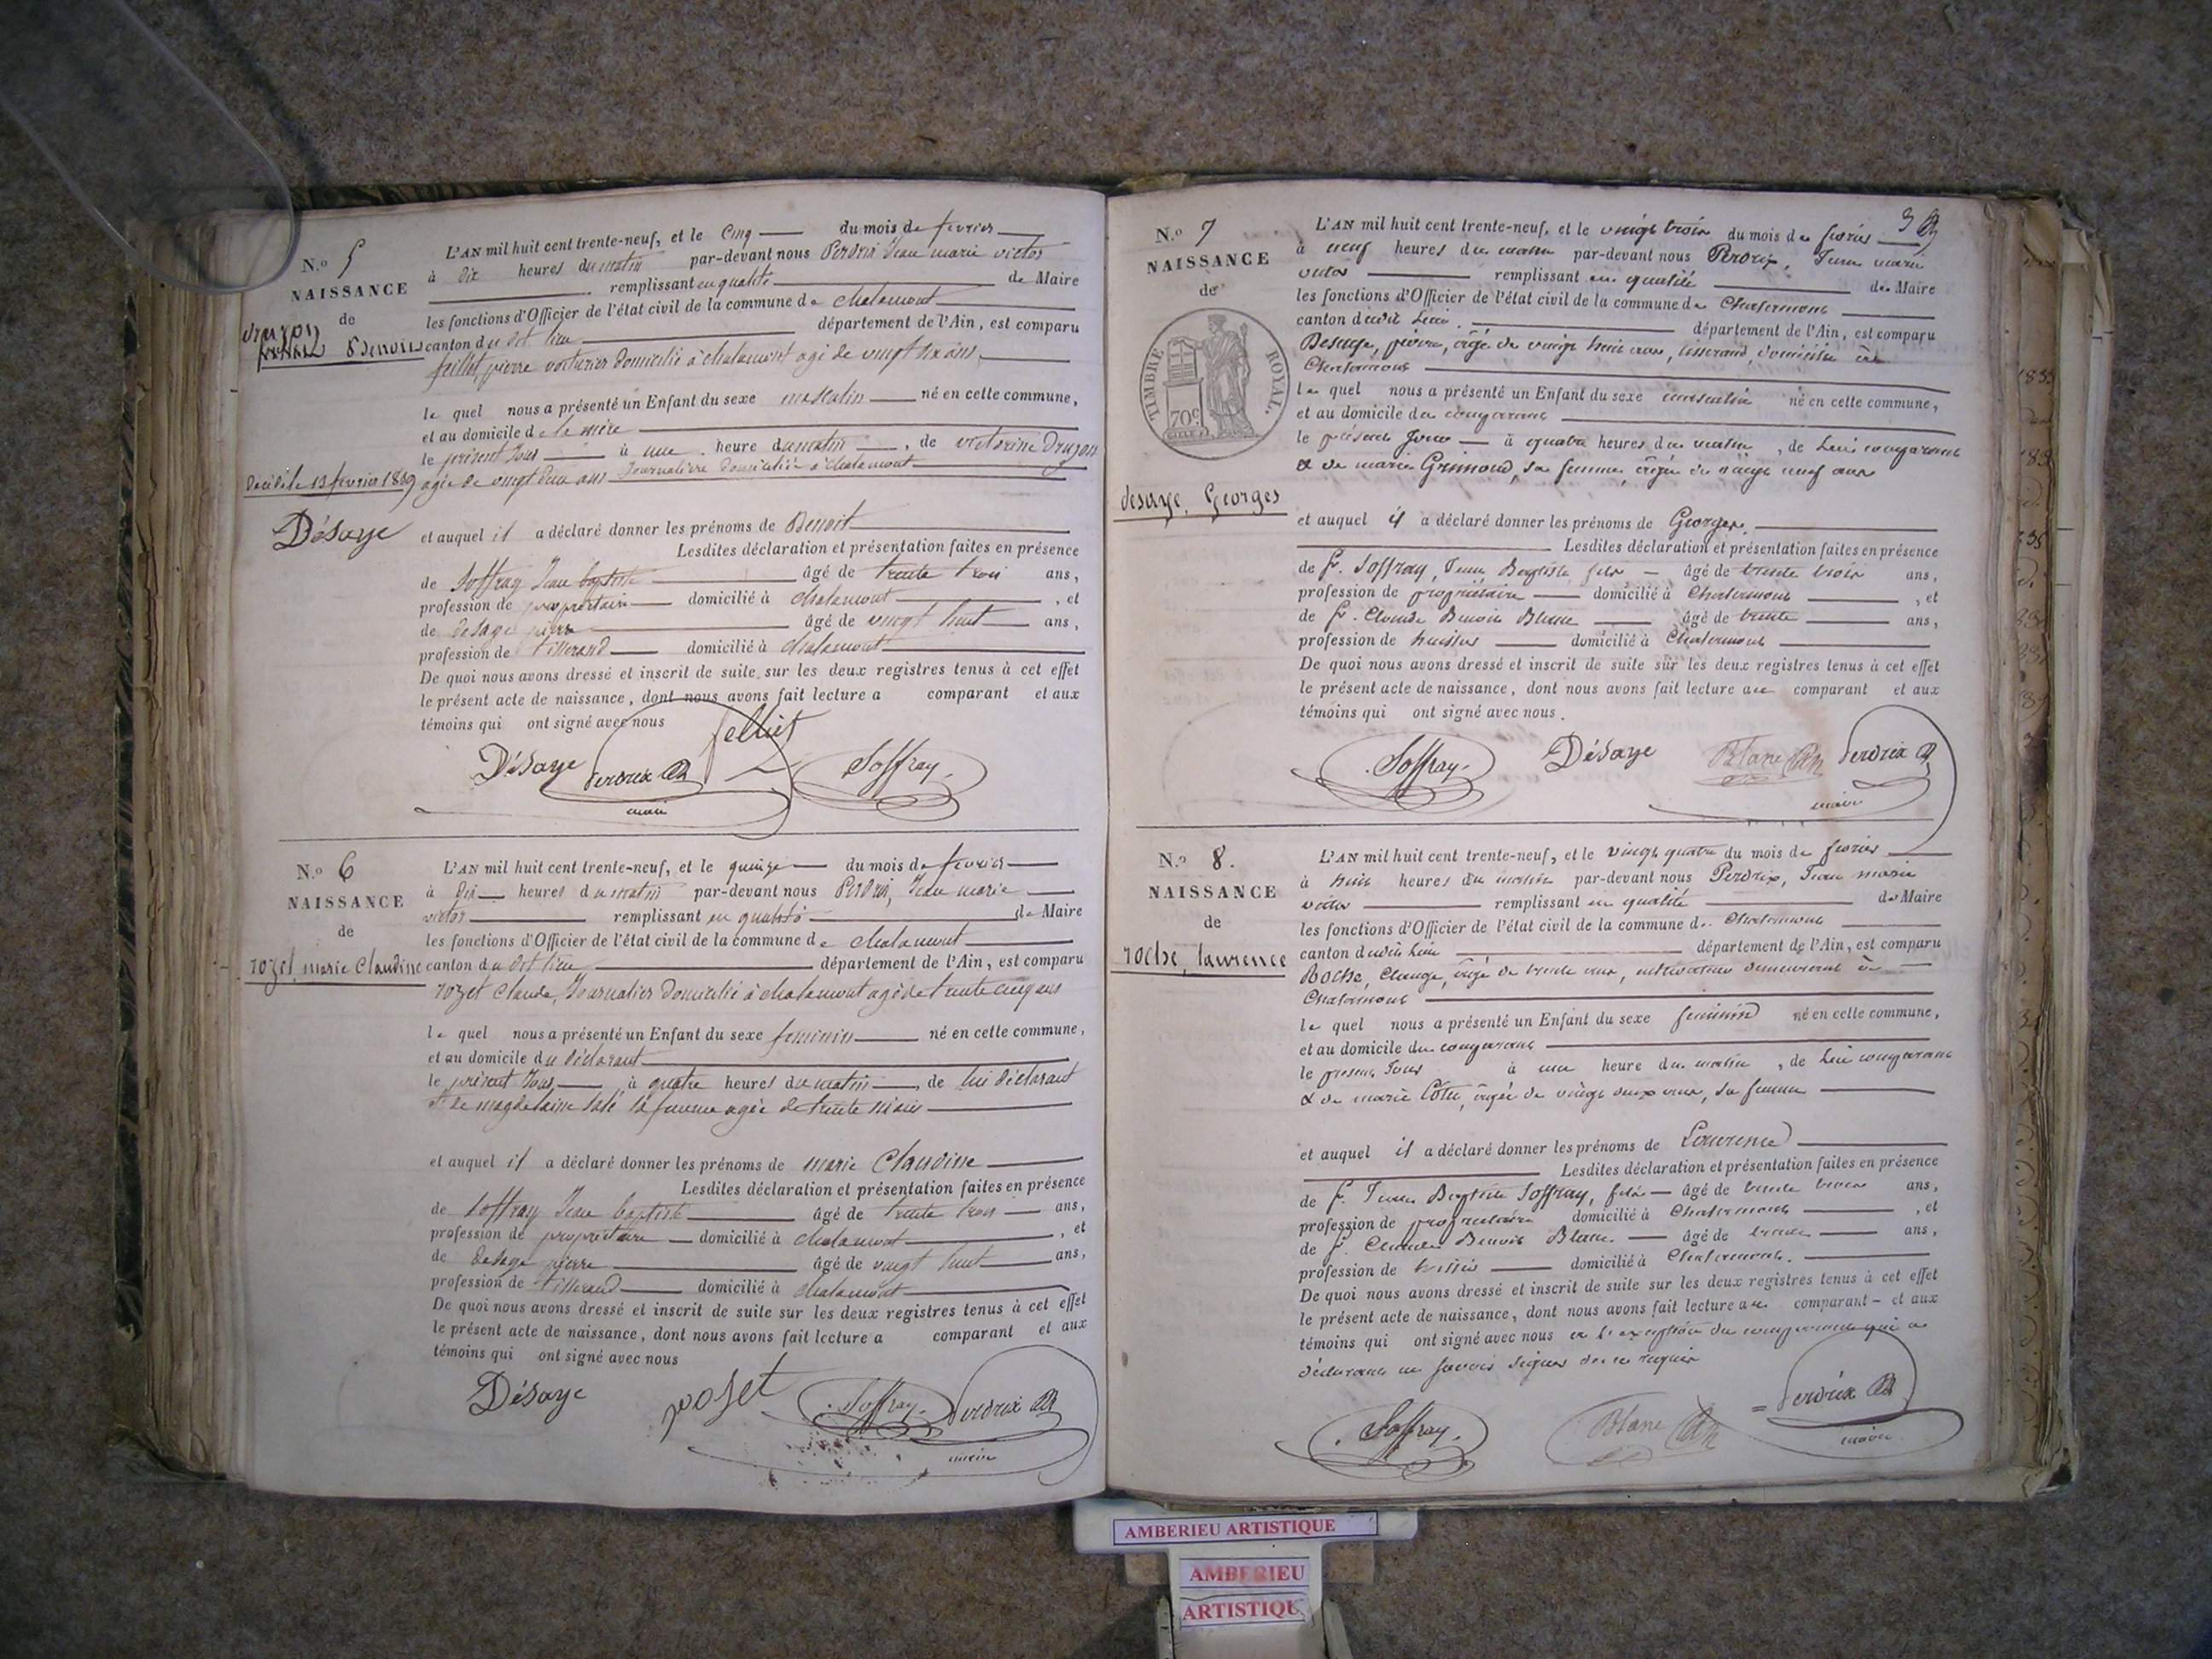 N.o 5
NAISSANCE
de
druzon
Benoit
décédé le 13 fevrier 1839
Désaye
L'AN mil huit cent trente-neuf, et le Cinq du mois de fevrier
à dix heures du matin par-devant nous Perdrix Jean marie victor
remplissant en qualité de Maire
les fonctions d'Officier de l'état civil de la commune de chalamont
canton du dit lieu département de l'Ain, est comparu
felliet pierre voiturier domicilié à chalamont agé de vingt six ans
le quel nous a présenté un Enfant du sexe masculin né en cette commune,
et au domicile de la mère
le présent Jour à une heure du matin, de victorine Druzon
agée de vingt deux ans Journalière domiciliée à chalamont
et auquel il a déclaré donner les prénoms de Benoit
Lesdites déclaration et présentation faites en présence
de Soffray Jean baptiste âgé de trente trois ans,
profession de propriétaire domicilié à chalamont, et
de desaye pierre âgé de vingt huit ans,
profession de tisserand domicilié à chalamont
De quoi nous avons dressé et inscrit de suite sur les deux registres tenus à cet effet
le présent acte de naissance, dont nous avons fait lecture a comparant et aux
témoins qui ont signé avec nous
felliet
Désaye Perdrix Soffray
maire
N.o 6
NAISSANCE
de
rozet marie Claudine
L'AN mil huit cent trente-neuf, et le quinze du mois de fevrier
à dix heures du matin par-devant nous Perdrix, Jean marie
victor remplissant en qualité de Maire
les fonctions d'Officier de l'état civil de la commune de chalamont
canton du dit lieu département de l'Ain, est comparu
rozet Claude, Journalier domicilié à chalamont agé de trente cinq ans
le quel nous a présenté un Enfant du sexe feminin né en cette commune,
et au domicile du déclarant
le présent Jour à quatre heures du matin, de lui déclarant
et de magdelaine sa femme agée de trente
et auquel il a déclaré donner les prénoms de marie Claudine
Lesdites déclaration et présentation faites en présence
de Soffray Jean baptiste âgé de trente trois ans,
profession de propriétaire domicilié à chalamont, et
de desaye pierre âgé de vingt huit ans,
profession de tisserand domicilié à chalamont
De quoi nous avons dressé et inscrit de suite sur les deux registres tenus à cet effet
le présent acte de naissance, dont nous avons fait lecture a comparant et aux
témoins qui ont signé avec nous
Désaye rozet Soffray Perdrix
maire
3
N.o 7
NAISSANCE
de
TIMBRE ROYAL.
70c
desaye, Georges
L'AN mil huit cent trente-neuf, et le vingt trois du mois de fevrier
à neuf heures du matin par-devant nous Perdrix, Jean marie
victor remplissant en qualité de Maire
les fonctions d'Officier de l'état civil de la commune de Chalamont
canton dudit Lieu. département de l'Ain, est comparu
Desaye, pierre, âgé de vingt huit ans, tisserand, domicilié à
Chalamont
le quel nous a présenté un Enfant du sexe masculin né en cette commune,
et au domicile du comparant
le présent Jour à quatre heures du matin, de Lui comparant
& de marie Grimond, sa femme, âgée de vingt neuf ans
et auquel il a déclaré donner les prénoms de Georges.
Lesdites déclaration et présentation faites en présence
de Soffray, Jean Baptiste fils âgé de trente trois ans,
profession de propriétaire domicilié à Chalamont, et
de Claude Benoit Blanc âgé de trente ans,
profession de huissier domicilié à Chalamont
De quoi nous avons dressé et inscrit de suite sur les deux registres tenus à cet effet
le présent acte de naissance, dont nous avons fait lecture au comparant et aux
témoins qui ont signé avec nous.
Soffray Désaye Blanc Perdrix
maire
N.o 8.
NAISSANCE
de
roche, laurence
L'AN mil huit cent trente-neuf, et le vingt quatre du mois de fevrier
à huit heures du matin par-devant nous Perdrix, Jean marie
victor remplissant en qualité de Maire
les fonctions d'Officier de l'état civil de la commune de Chalamont
canton dudit Lieu département de l'Ain, est comparu
Roche, âgé de trente ans, cultivateur demeurant à
Chalamont
le quel nous a présenté un Enfant du sexe feminin né en cette commune,
et au domicile du comparant
le present Jour à une heure du matin, de Lui comparant
& de marie âgée de vingt deux ans, sa femme
et auquel il a déclaré donner les prénoms de Laurence
Lesdites déclaration et présentation faites en présence
de Jean Baptiste Soffray, fils âgé de trente trois ans,
profession de propriétaire domicilié à Chalamont, et
de Claude Benoit Blanc âgé de trente ans,
profession de huissier domicilié à Chalamont.
De quoi nous avons dressé et inscrit de suite sur les deux registres tenus à cet effet
le présent acte de naissance, dont nous avons fait lecture au comparant et aux
témoins qui ont signé avec nous à l'exception du comparant qui a
déclaré ne savoir signer de ce requis
Soffray Blanc Perdrix
maire
AMBERIEU ARTISTIQUE
AMBERIEU
ARTISTIQUE